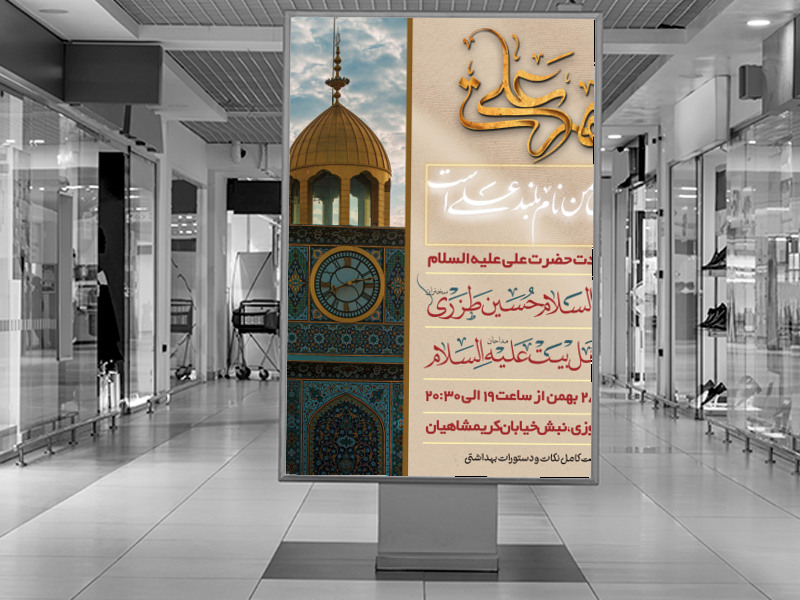 علی
من نام بلند علی است
دت حضرت علی علیه السلام
السلام حسین طزری
سخنران
تل بیت علیه السلام
مداحان
۲۸ بهمن از ساعت ۱۹ الی ۲۰:۳۰
وزی، نبش خیابان کریمشاهیان
ت کامل نکات و دستورات بهداشتی